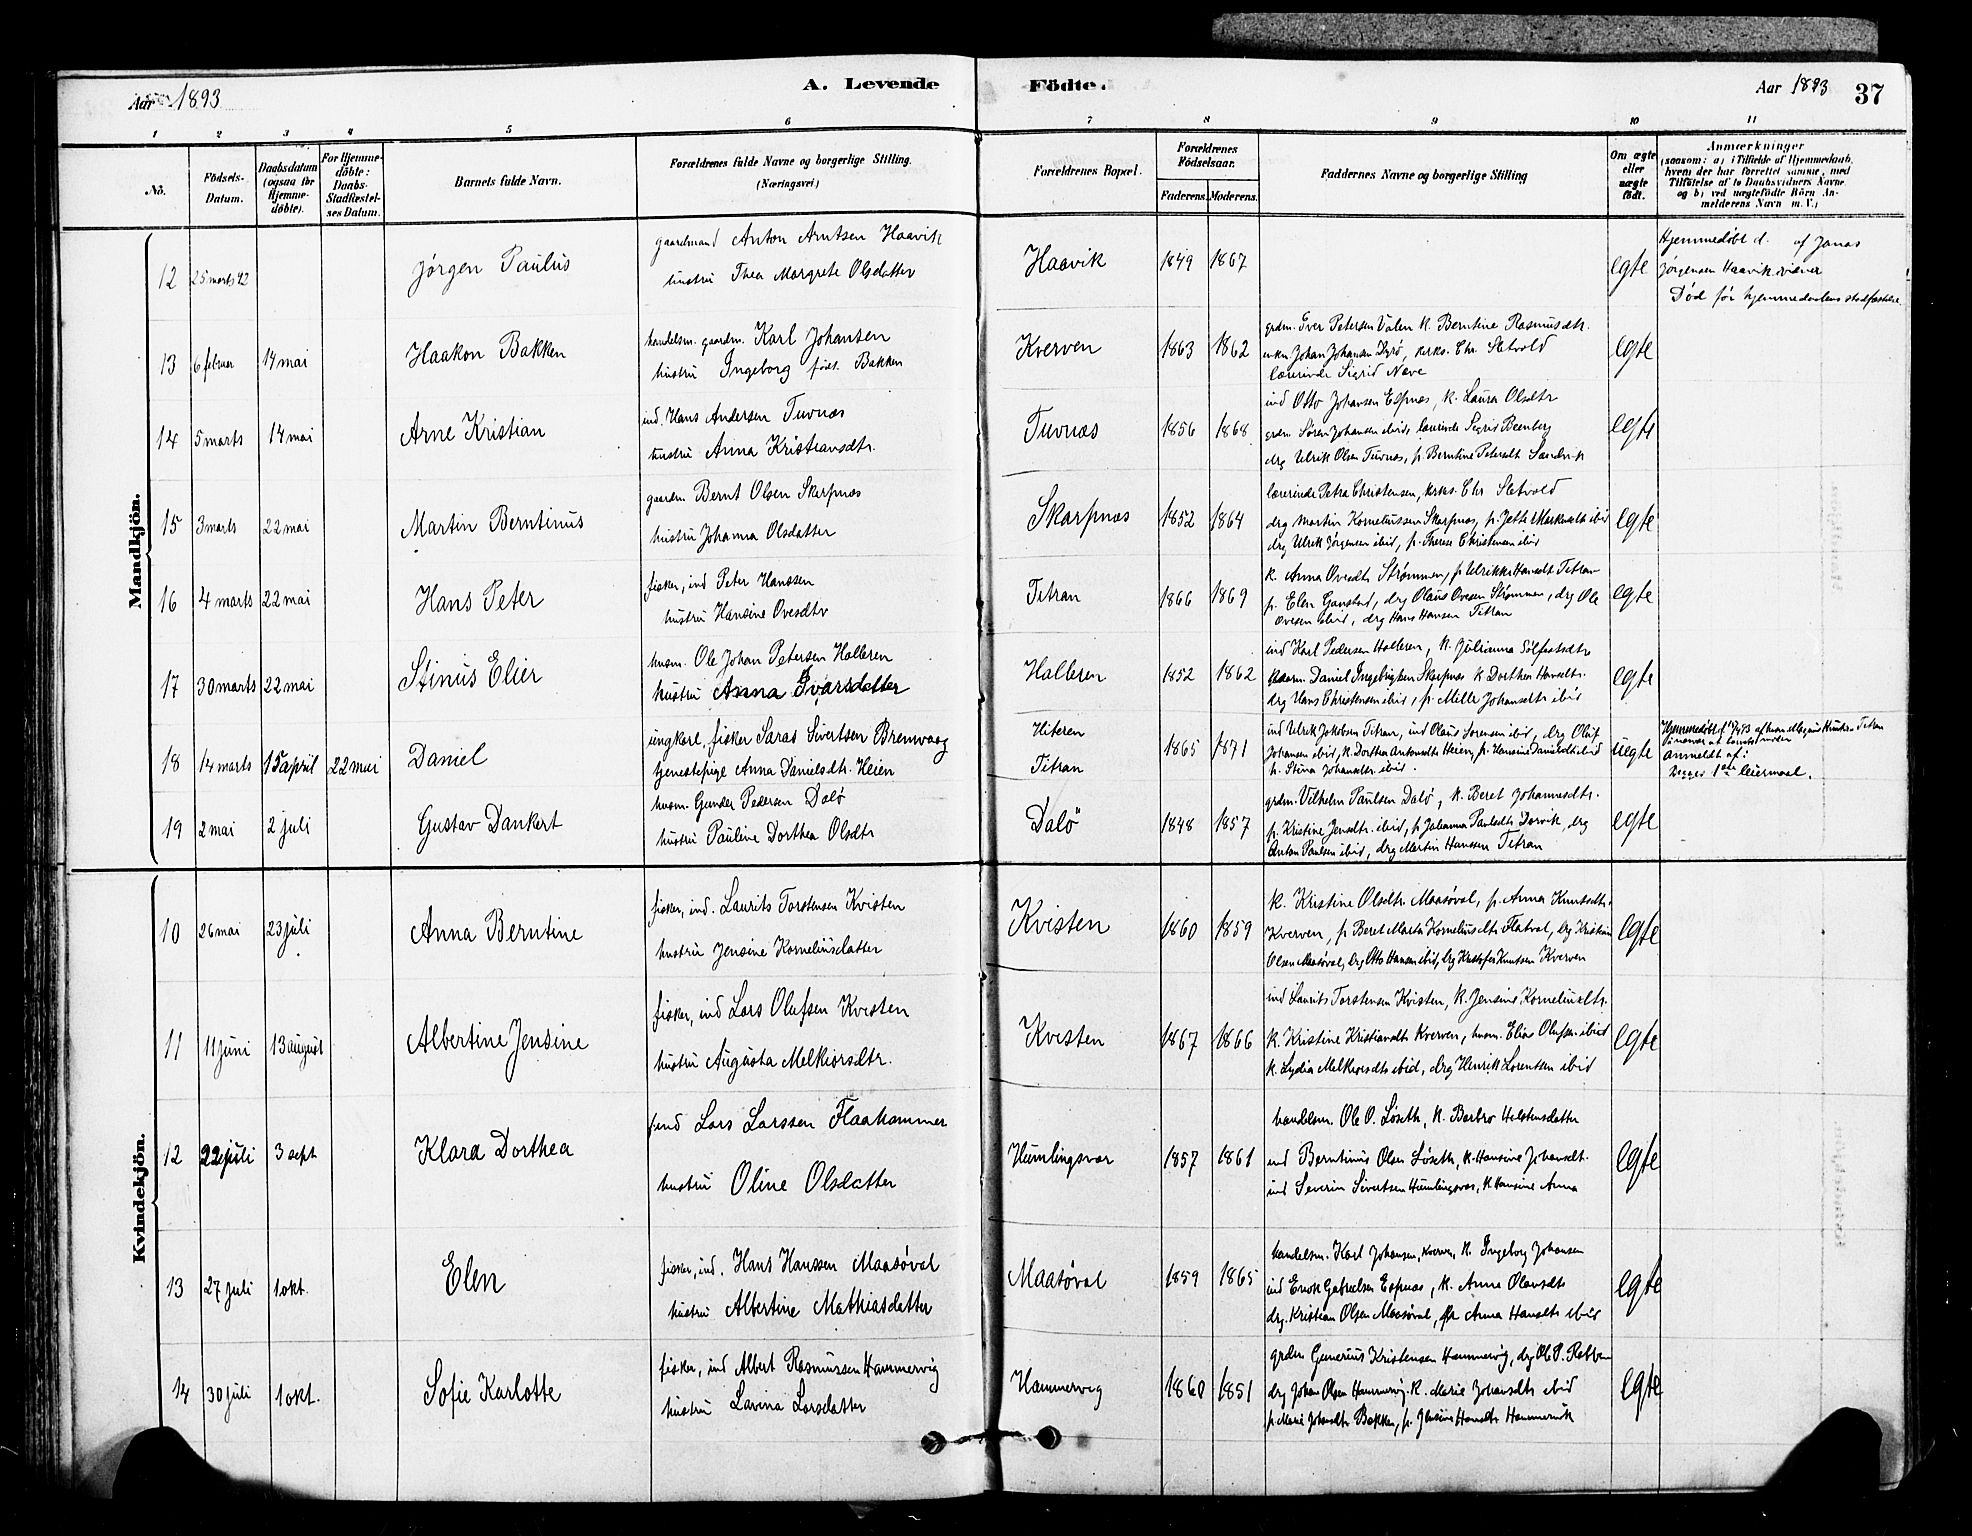 Aar 1893
A. Levende
Födte.
Aar 1893
37
1 2 3 4 5 6 7 8 9 10 11
No.
Födsels-Datum.
Daabsdatum (ogsaa for Hjemme-döbte).
For Hjemme-döbte: Daabs-Stadfæstel-ses Datum.
Barnets fulde Navn.
Forældrenes fulde Navne og borgerlige Stilling. (Næringsvei)
Forældrenes Bopæl.
Forældrenes Födselsaar.
Faderens. Moderens.
Faddernes Navne og borgerlige Stilling
Om ægte eller uægte født.
Anmærkninger
(saasom: a) i Tilfælde af Hjemmedaab, hvem der har forrettet samme, med Tilföielse af to Daabsvidners Navne og b) ved uægtefödte Börn Anmelderens Navn m. V.)
Mandkjön.
12 25 marts 92 Jørgen Paulus
gaardmand Anton Arntsen Haavik
hustru Thea Margrete Olsdatter
Haavik 1849 1867 egte
Hjemmedøbt d. af Jonas
Jørgensen Haavik
Død før hjemmedaabens stadfæstelse
13 6 februar 14 mai Haakon Bakken
handelsm. gaardm. Karl Johansen
hustru Ingeborg født Bakken
Kverven 1863 1862
grdm. Iver Petersen Valen k. Berntine Rasmusdtr.
enkm Johan Johansen Dyrö, kirks. Chr. Sletvold
lærerinde Sigrid Neve
egte
14 5 marts 14 mai Arne Kristian
ind. Hans Andersen Tuvnæs
hustru Anna Kristiansdtr.
Tuvnæs 1856 1868
ind Otto Johansen Espnæs, k. Laura Olsdtr
grdm Søren Johansen ibid, lærerinde Sigrid
drg Ulrik Olsen Tuvnæs, p. Berntine Petersdt Sandvik
egte
15 3 marts 22 mai Martin Berntinus
gaardm. Bernt Olsen Skarpnæs
hustru Johanna Olsdatter
Skarpnæs 1852 1864
lærerinde Petra Christensen, kirks. Chr Sletvold
drg Martin Korneliussen Skarpnæs, p. Jette Markusdt ibid
drg Ulrik Jørgensen ibid, p. Therese Christensen ibid
egte
16 4 marts 22 mai Hans Peter
fisker, ind Peter Hanssen
hustru Hansine Ovesdtr
Titran 1866 1869
k. Anna Ovesdtr Strømmen, p. Ulrikke Hansdt Titran
p. Elen Ganstad, drg Olaus Ovesen Strømmen, drg Ole
Ovesen ibid, drg Hans Hansen Titran
egte
17 30 marts 22 mai Stinus Elier
husm. Ole Johan Petersen Halleren
hustru Anna Ivarsdatter
Halleren 1852 1862
ind Karl Pedersen Halleren, k. Julianna
Daniel Ingebrigtsen Skarpnæs k Dorthea Hansdtr.
drg Hans Christensen ibid, p. Mille Johansdtr ibid
egte
18 14 marts 15 april 22 mai Daniel
ungkarl, fisker Saras Sivertsen Bremvaag
tjenestepige Anna Danielsdtr. Heien
Hiteren
Titran
1865 1871
ind Ulrik Jakobsen Titran, ind Olaus Sørensen ibid, drg Oluf
Johansen ibid, k. Dorthea Antonsdtr Heien, p. Hansine Danielsdt ibid
p. Stina Johansdtr. ibid.
uegte
Anmeldt af:
Begges 1ste leiermaal.
19 2 mai 2 juli Gustav Dankert
husm. Gunder Pedersen Dalö
hustru Pauline Dorthea Olsdtr
Dalö 1848 1857
grdm. Vilhelm Paulsen Dalö, k. Beret Johannesdtr.
p. Kristine Jensdtr. ibid, p. Johanna Paulsdt Dørvik, drg
Anton Paulsen ibid, drg Martin Hanssen Titran
egte
Kvindekjön.
10 26 mai 23 juli Anna Berntine
fisker, ind. Laurits Torstensen Kvisten
hustru Jensine Korneliusdatter
Kvisten 1860 1859
k. Kristine Olsdtr. Maasøval, p. Anna Knutsdtr.
Kverven, p. Beret Marta Korneliusdt. Flatval, drg Kristian
Olsen Maasøval, drg Otto Hansen ibid, drg Kristofer Knutsen Kverven
egte
11 11 juni 13 august Albertine Jensine
fisker, ind Lars Olufsen Kvisten
hustru Augusta Melkiorsdtr.
Kvisten 1867 1866
ind Laurits Torstensen Kvisten, k. Jensine Korneliusdtr.
k. Kristine Kristiansdt. Kverven, husm. Elias Olufsen ibid
k. Lydia Melkiorsdtr ibid, drg Henrik Lorentsen ibid
egte
12 22 juli 3 sept Klara Dorthea
ind Lars Larssen Flaahammer
hustru Oline Olsdatter
Humlingsvær 1857 1861
handelsm. Ole O. Løseth, k. Barbro Halstensdatter
ind Berntinus Olsen Løseth, k. Hansine Johansdt.
ind Severin Sivertsen Humlingsvær, k. Hansine Anna
egte
13 27 juli 1 okt. Elen
fisker, ind. Hans Hanssen Maasøval
hustru Albertine Mathiasdatter
Maasøval 1859 1865
handelsm. Karl Johansen, Kverven, k. Ingeborg Johansen
ind Enok Gabrielsen Espnæs, k. Anna Olausdt
drg. Kristian Olsen Maasøval, p. Anna Hansdt. ibid
egte
14 30 juli 1 okt. Sofie Karlotte
fisker, ind Albert Rasmussen Hammervig
hustru Lavina Larsdatter
Hammervig 1860 1851
grdm Gunerius Kristensen Hammervig, drg Ole P.
drg Johan Olsen Hammervig, k. Marie Johansdt. ibid
p. Marie Johansdt. Bakken, p. Jensine Hansdtr Hammervik
egte